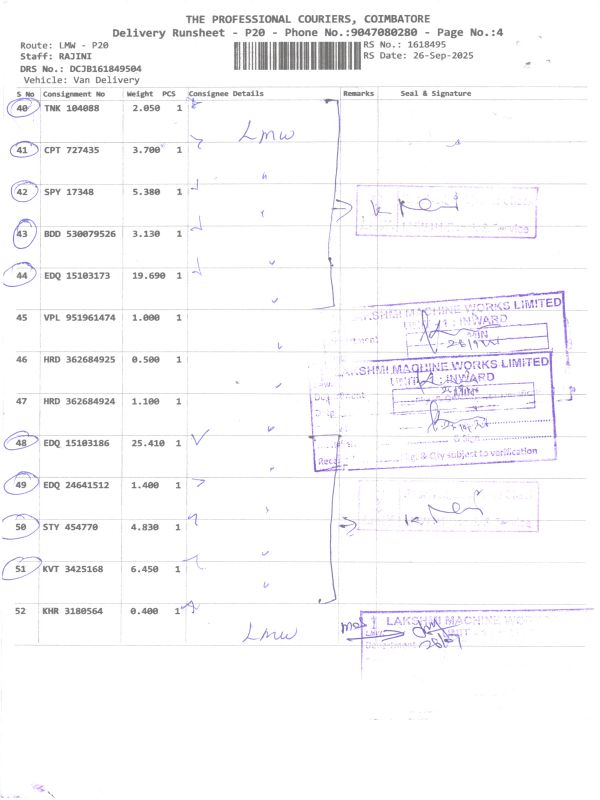 THE PROFESSIONAL COURIERS, COIMBATORE
Delivery Runsheet - P20 - Phone No.:9047080280 - Page No.:4
Route: LMW - P20
Staff: RAJINI
DRS No.: DCJB161849504
Vehicle: Van Delivery
RS No.: 1618495
RS Date: 26-Sep-2025
S No Consignment No Weight PCS Consignee Details Remarks Seal & Signature
40 TNK 104088 2.050 1
LMW
41 CPT 727435 3.700 1
42 SPY 17348 5.380 1
43 BDD 530079526 3.130 1
44 EDQ 15103173 19.690 1
45 VPL 951961474 1.000 1
LAKSHMI MACHINE WORKS LIMITED
INWARD
MIN
46 HRD 362684925 0.500 1
LAKSHMI MACHINE WORKS LIMITED
INWARD
MIN
47 HRD 362684924 1.100 1
48 EDQ 15103186 25.410 1
& Qty subject to verification
49 EDQ 24641512 1.400 1
50 STY 454770 4.830 1
51 KVT 3425168 6.450 1
52 KHR 3180564 0.400 1
LMW
LAKSHMI MACHINE WO